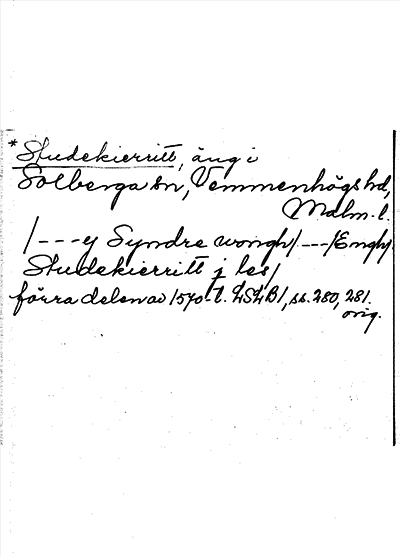 *Studekierritt, äng i
Solberga sn, Vemmenhögs hd,
Malm. l.
/---ej Syndre wongh/---/Engh/
Studekierritt j les/
förra delen av 1570-t. LSLB1, ss. 280, 281.
orig.